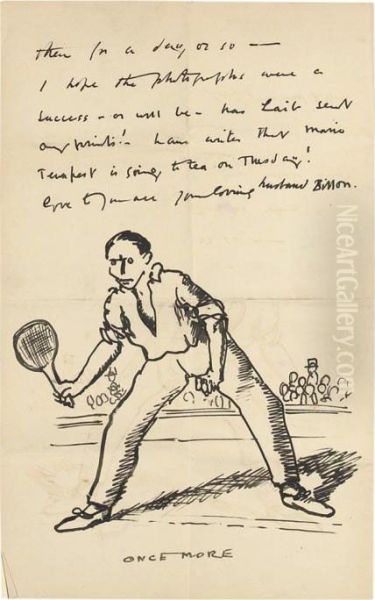 then for a day or so —
I hope the photographs were a
success - or will be - has Lait sent
any prints! Laura writes that Marie
Tempest is going to tea on Tuesday!
love to you all your loving husband Billon.
ONCE MORE
NiceArtGallery.com